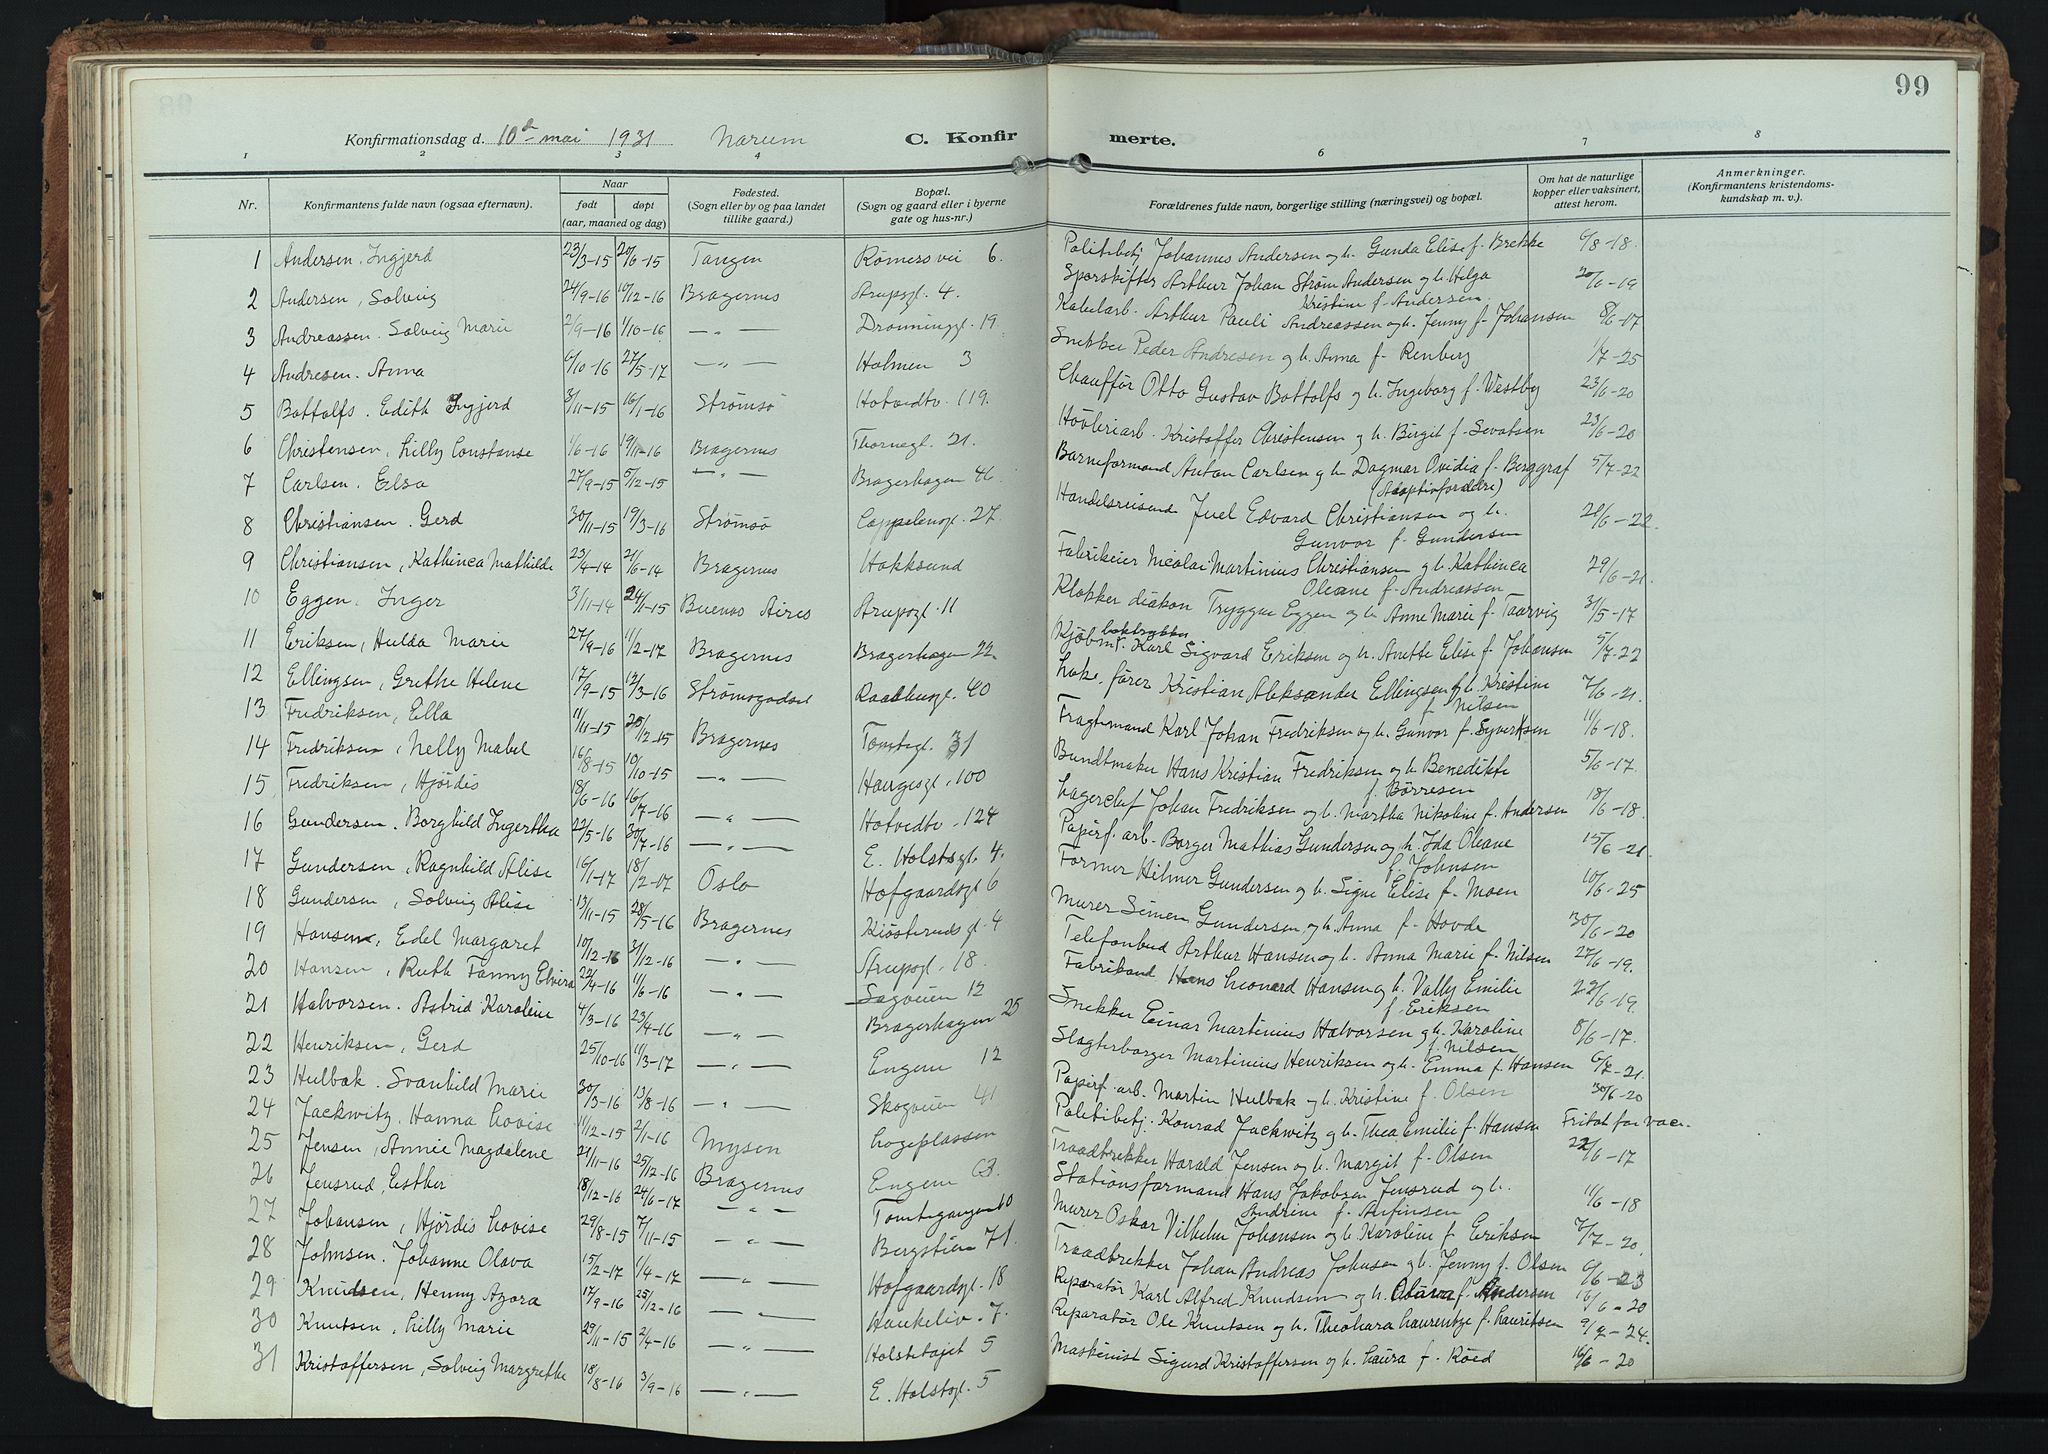 99
Konfirmationsdag d. 10d mai 1931 Narum C. Konfirmerte.
1 2 3 4 6 7 8
Nr. Konfirmantens fulde navn (ogsaa efternavn). Naar født døpt (aar, maaned og dag) Fødested. (Sogn eller by og paa landet tillike gaard.) Bopæl. (Sogn og gaard eller i byerne gate og hus-nr.) Forældrenes fulde navn, borgerlige stilling (næringsvei) og bopæl. Om hat de naturlige kopper eller vaksinert, attest herom. Anmerkninger. (Konfirmantens kristendomskundskap m. v.).
1 Andersen, Ingjerd 23/3-15 20/6-15 Tangen Rømersvei 6. Politibetj. Johannes Andersen og h. Gunda Elise f. Brekke 6/8-18.
2 Andersen, Solveig 24/9-16 10/12-16 Bragernes Strupsgt. 4. Sporskifter Arthur Johan Strøm Andersen og h. Helga Kristine f. Andersen 20/6-19
3 Andreassen. Solveig Marie 2/9-16 1/10-16 —"— Dronninggt. 19. Kabelarb. Arthur Pauli Andreassen og h. Jenny f. Johansen 8/6-17
4 Andresen. Anna 6/10-16 27/5-17 —"— Holmen 3 Snekker Peder Andresen og h. Anna f. Renberg 1/7-25
5 Bottolfs. Edith Ingjerd 3/11-15 16/1-16 Strømsø Hotvedtv. 119. Chauffør Otto Gustav Bottolfs og h. Ingeborg f. Westby 23/6-20
6 Christensen, Lilly Constanse 1/6-16 19/11-16 Bragernes Thornegt. 21. Høvleriarb. Kristoffer Christensen og h. Birgit f. Sevatsen 23/6-20
7 Carlsen. Elsa 27/9-15 5/12-15 —"— Bragerhagen 46. Barneformand Anton Carlsen og h. Dagmar Ovidia f. Berggraf (Adoptivforeldre) 5/7-22
8 Christiansen. Gerd 30/11-15 19/3-16 Strømsø Cappelensgt. 27. Handelsreisend Juel Edvard Christiansen og h. Gunvor f. Gundersen 21/6-22.
9 Christiansen, Kathinca Mathilde 23/4-14 21/6-14 Bragernes Hokksund Fabrikeier Nicolai Martinius Christiansen og h. Kathinca Oleane f. Andreassen 29/6-21.
10 Eggen, Inger 3/11-14 24/1-15 Buenos Aires Strupsgt. 11 Klokker diakon Tryggve Eggen og h. Anne Marie f. Taarvig 31/5-17
11 Eriksen, Hulda Marie 27/9-16 11/2-17 Bragernes Bragerhagen 22. Kjøbm. boktrykker Karl Sigvard Eriksen og h. Anette Elise f. Johansen 5/7-22
12 Ellingsen, Grethe Helene 17/9-15 12/3-16 Strømsgodset Raadhusgt. 40 Lok. fører Kristian Aleksander Ellingsen og h. Kristine f. Nilsen 7/6-21.
13 Fredriksen, Ella 11/11-15 26/12-15 Bragernes Tomtegt. 31 Fragtemand Karl Johan Fredriksen og h. Gunvor f. Syvertsen 11/6-18.
14 Fredriksen, Nelly Mabel 16/8-15 10/10-15 —"— Haugesgt. 100 Bundtmaker Hans Kristian Fredriksen og h. Benedikte f. Børresen 5/6-17.
15 Fredriksen, Hjørdis 18/6-16 16/7-16 —"— Hotvedtv. 124 Lagerchef Johan Fredriksen og h. Martha Nikoline f. Andersen 18/6-18.
16 Gundersen. Borghild Ingertha 22/5-16 30/7-16 —"— E. Holstsgt. 4. Papirf. arb. Borger Mathias Gundersen og h. Ida Oleane f. Johnsen 15/6-21.
17 Gundersen, Ragnhild Alise 16/1-17 18/2-17 Oslo Hofgaardsgt 6 Former Hilmer Gundersen og h. Signe Elise f. Moen 10/6-25
18 Gundersen, Solveig Alise 13/11-15 28/5-16 Bragernes Kiøsterudsgt. 4 Murer Simen Gundersen og h. Anna f. Hovde 30/6-20
19 Hansen, Edel Margaret 10/12-16 31/12-16 —"— Strupsgt. 18. Telefonbud Arthur Hansen og h. Anna Marie f. Nilsen 27/6-19.
20 Hansen, Ruth Fanny Elvira 22/4-16 11/6-16 —"— Sagveien 12 Fabrikand Hans Leonard Hansen og h. Vally Emilie f. Eriksen 22/6-19.
21 Halvorsen. Astrid Karoline 4/3-16 23/4-16 —"— Bragerhagen 25 Snekker Einar Martinius Halvorsen og h. Karoline f. Nilsen 8/6-17.
22 Henriksen, Gerd 25/10-16 11/3-17 —"— Engene 12 Slagterborger Martinius Henriksen og h. Emma f. Hansen 6/7-21.
23 Hulbak. Svanhild Marie 30/3-16 13/8-16 —"— Skogveien 41 Papirf. arb. Martin Hulbak og h. Kristine f. Olsen 30/6-20
24 Jackwitz, Hanna Lovise 11/12-15 2/1-16 Mysen Logeplassen Politibetj. Konrad Jackwitz og h. Thea Emilie f. Hansen Fritat for vac.
25 Jensen, Annie Magdalene 21/11-16 25/12-16 Bragernes Engene 63. Traadtrekker Harald Jensen og h. Margit f. Olsen 22/6-17
26 Jensrud, Esther 18/12-16 24/6-17 —"— Tomtegangen 10 Stationsformand Hans Jakobsen Jensrud og h. Andrine f. Anfinsen 11/6-18
27 Johansen, Hjørdis Lovise 29/8-15 7/11-15 —"— Bergstien 71. Murer Oskar Vilhelm Johansen og h. Karoline f. Eriksen 7/7-20.
28 Johnsen. Johanne Olava 15/2-17 1/4-17 —"— Hofgaardsgt. 18 Traadtrekker Johan Andreas Johnsen og h. Jenny f. Olsen 6/6-23
29 Knudsen, Henny Agora 17/9-16 25/12-16 —"— Haukeliv. 7. Reparatør Karl Alfred Knudsen og h. Olava f. Andersen 16/6-20
30 Knutsen, Lilly Marie 29/11-15 2/4-16 —"— Holstetojet 5 Reparatør Ole Knutsen og h. Theohara Laurentze f. Lauritsen 9/7-24.
31 Kristoffersen, Solveig Margrethe 18/8-16 3/9-16 —"— E. Holstsgt. 5 Maskinist Sigurd Kristoffersen og h. Laura f. Røed 16/6-20